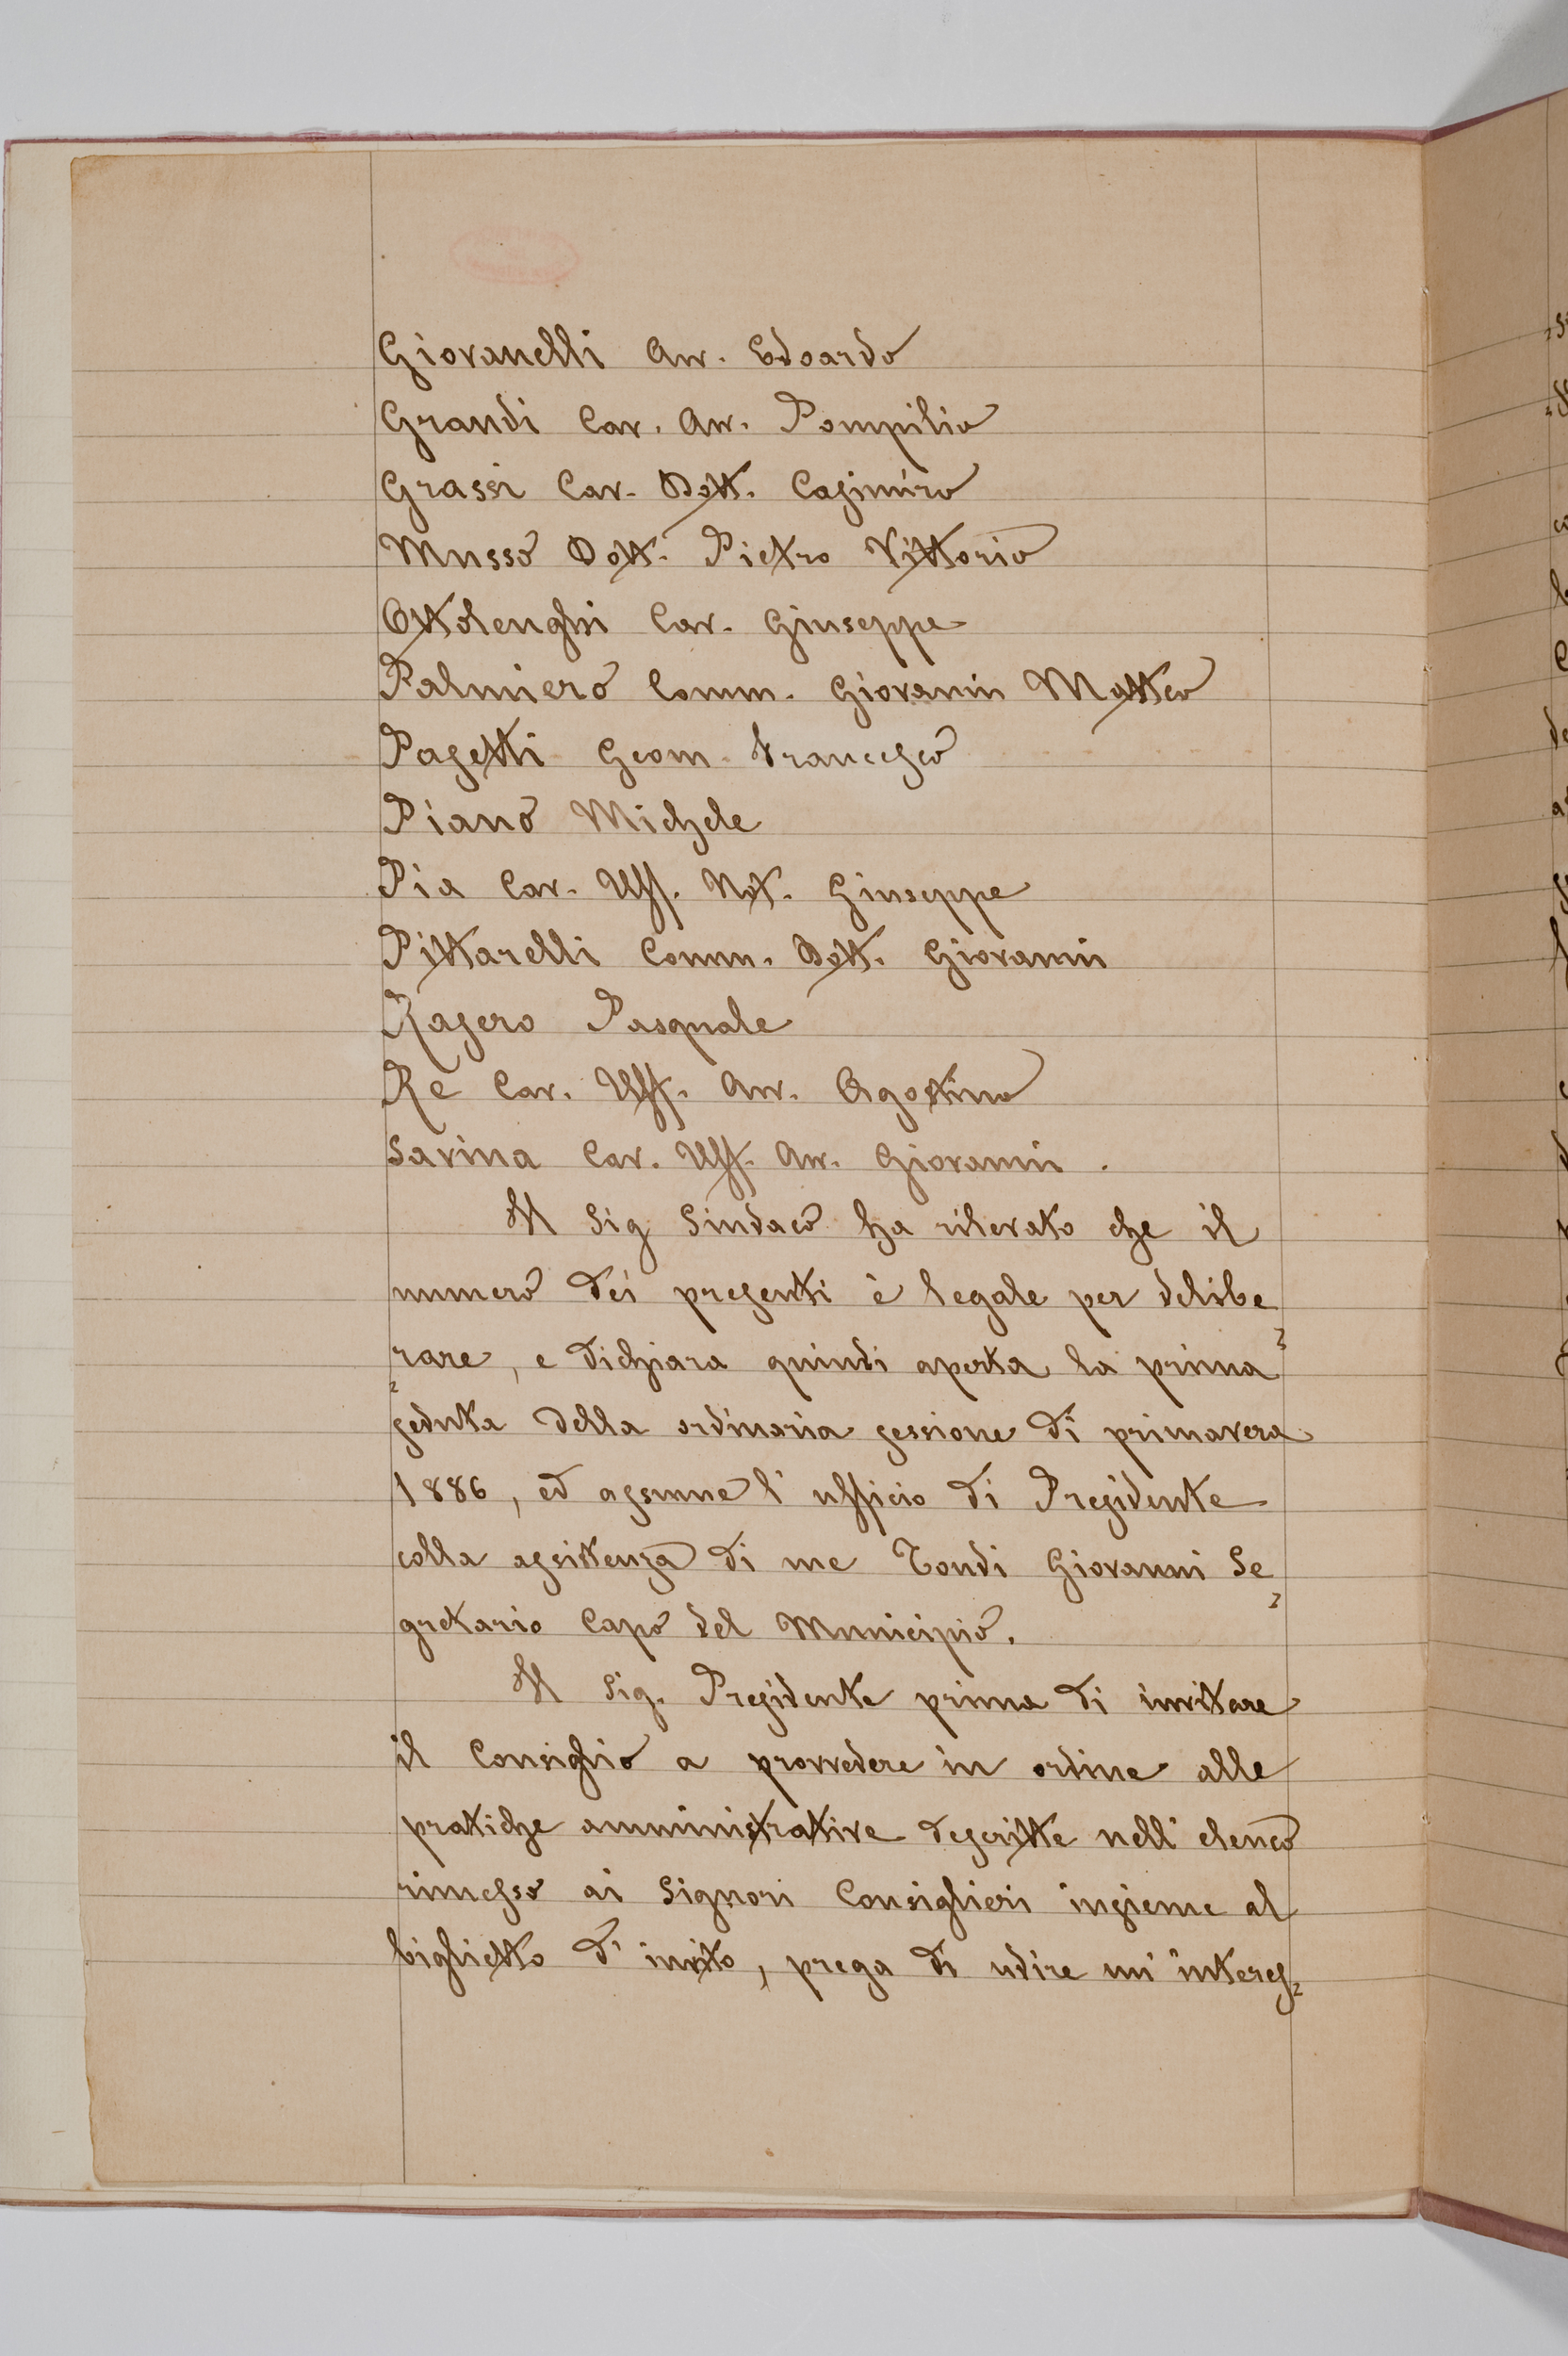 Giovanelli Avv. Edoardo
Grandi Cav. Avv. Pompilio
Grassi Cav. Dott. Casimiro
Musso Dott. Pietro Vittorio
Ottolenghi Cav. Giuseppe
Palmiero Comm. Giovanni Matteo
Pagetti Geom. Francesco
Piano Michele
Pia Cav. Uff. Not. Giuseppe
Pittarelli Comm. Dott. Giovanni
Rasero Pasquale
Re Cav. Uff. Avv. Agostino
Savina Cav. Uff. Avv. Giovanni.
Il Sig Sindaco ha rilevato che il
numero dei presenti è legale per delibe=
=rare, e dichiara quindi aperta la prima
seduta della ordinaria sessione di primavera
1886, ed assume l'ufficio di Presidente
colla assistenza di me Tondi Giovanni Se=
gretario Capo del Municipio.
Il Sig. Presidente prima di invitare
il Consiglio a provvedere in ordine alle
pratiche amministrative descritte nell'elenco
rimesso ai Signori Consiglieri insieme al
biglietto d'invito, prega di udire un'interes=